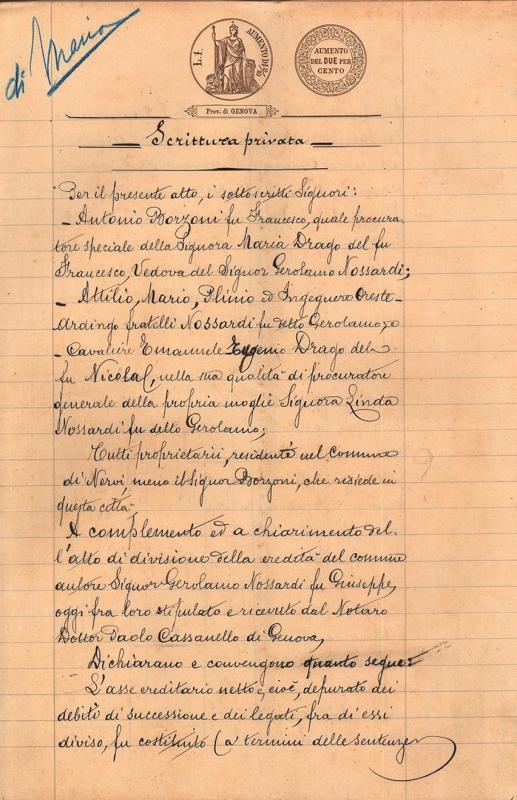 di Maria
L. 1.
AUMENTO DI 2/10
AUMENTO
DEL DUE PER
CENTO
Prov. di GENOVA
Scrittura privata
Per il presente atto, i sottoscritti Signori:
- Antonio Borzoni fu Francesco, quale procura-
tore speciale della Signora Maria Drago del fu
Francesco, Vedova del Signor Gerolamo Nossardi;
- Attilio, Mario, Plinio ed Ingegnere Oreste-
Ardingo fratelli Nossardi fu detto Gerolamo, e
- Cavaliere Emanuele Eugenio Drago del
fu Nicola, nella sua qualità di procuratore
generale della propria moglie Signora Linda
Nossardi fu detto Gerolamo;
Tutti proprietarii, residenti nel Comune
di Nervi, meno il Signor Borzoni, che risiede in
questa città,
A complemento ed a chiarimento del-
l'atto di divisione della eredità del comune
autore Signor Gerolamo Nossardi fu Giuseppe,
oggi fra loro stipulato e ricevuto dal Notaro
Dottor Paolo Cassanello di Genova,
Dichiarano e convengono quanto segue:
L'asse ereditario netto, cioè, depurato dei
debiti di successione e dei legati, fra di essi
diviso, fu costituito (a termini delle sentenze